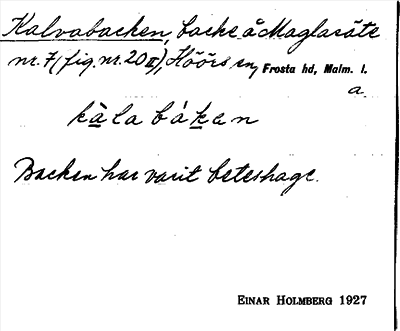 Kalvabacken, backe å Maglasäte
nr. 7 (fig. nr. 20 II), Höörs sn, Frosta hd, Malm. l.
a.
kàlabákən
Backen har varit beteshage.
EINAR HOLMBERG 1927